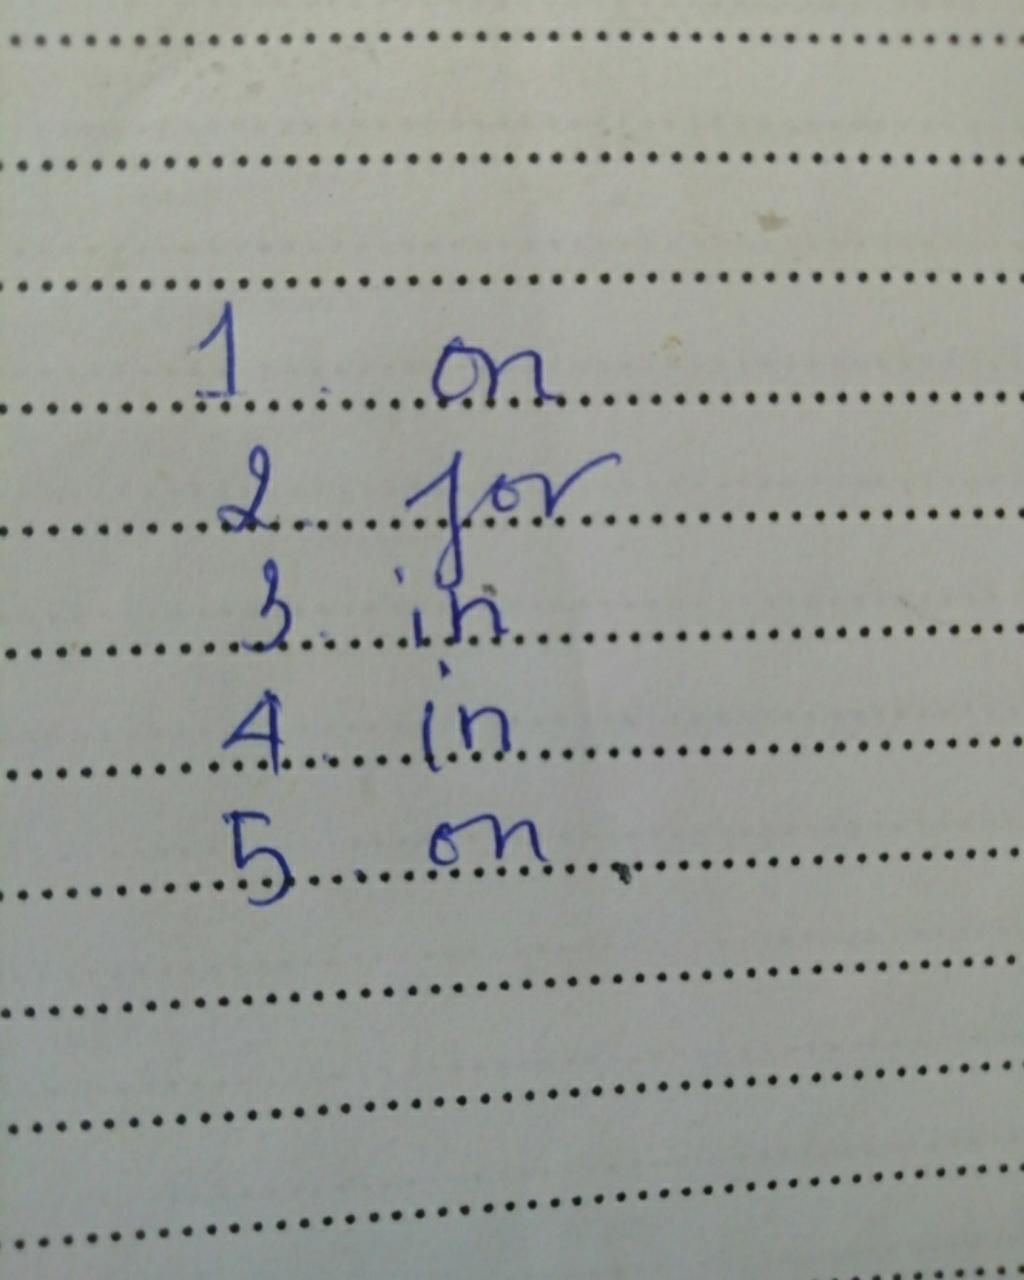 1. on
2. for
3. in
4. in
5. on